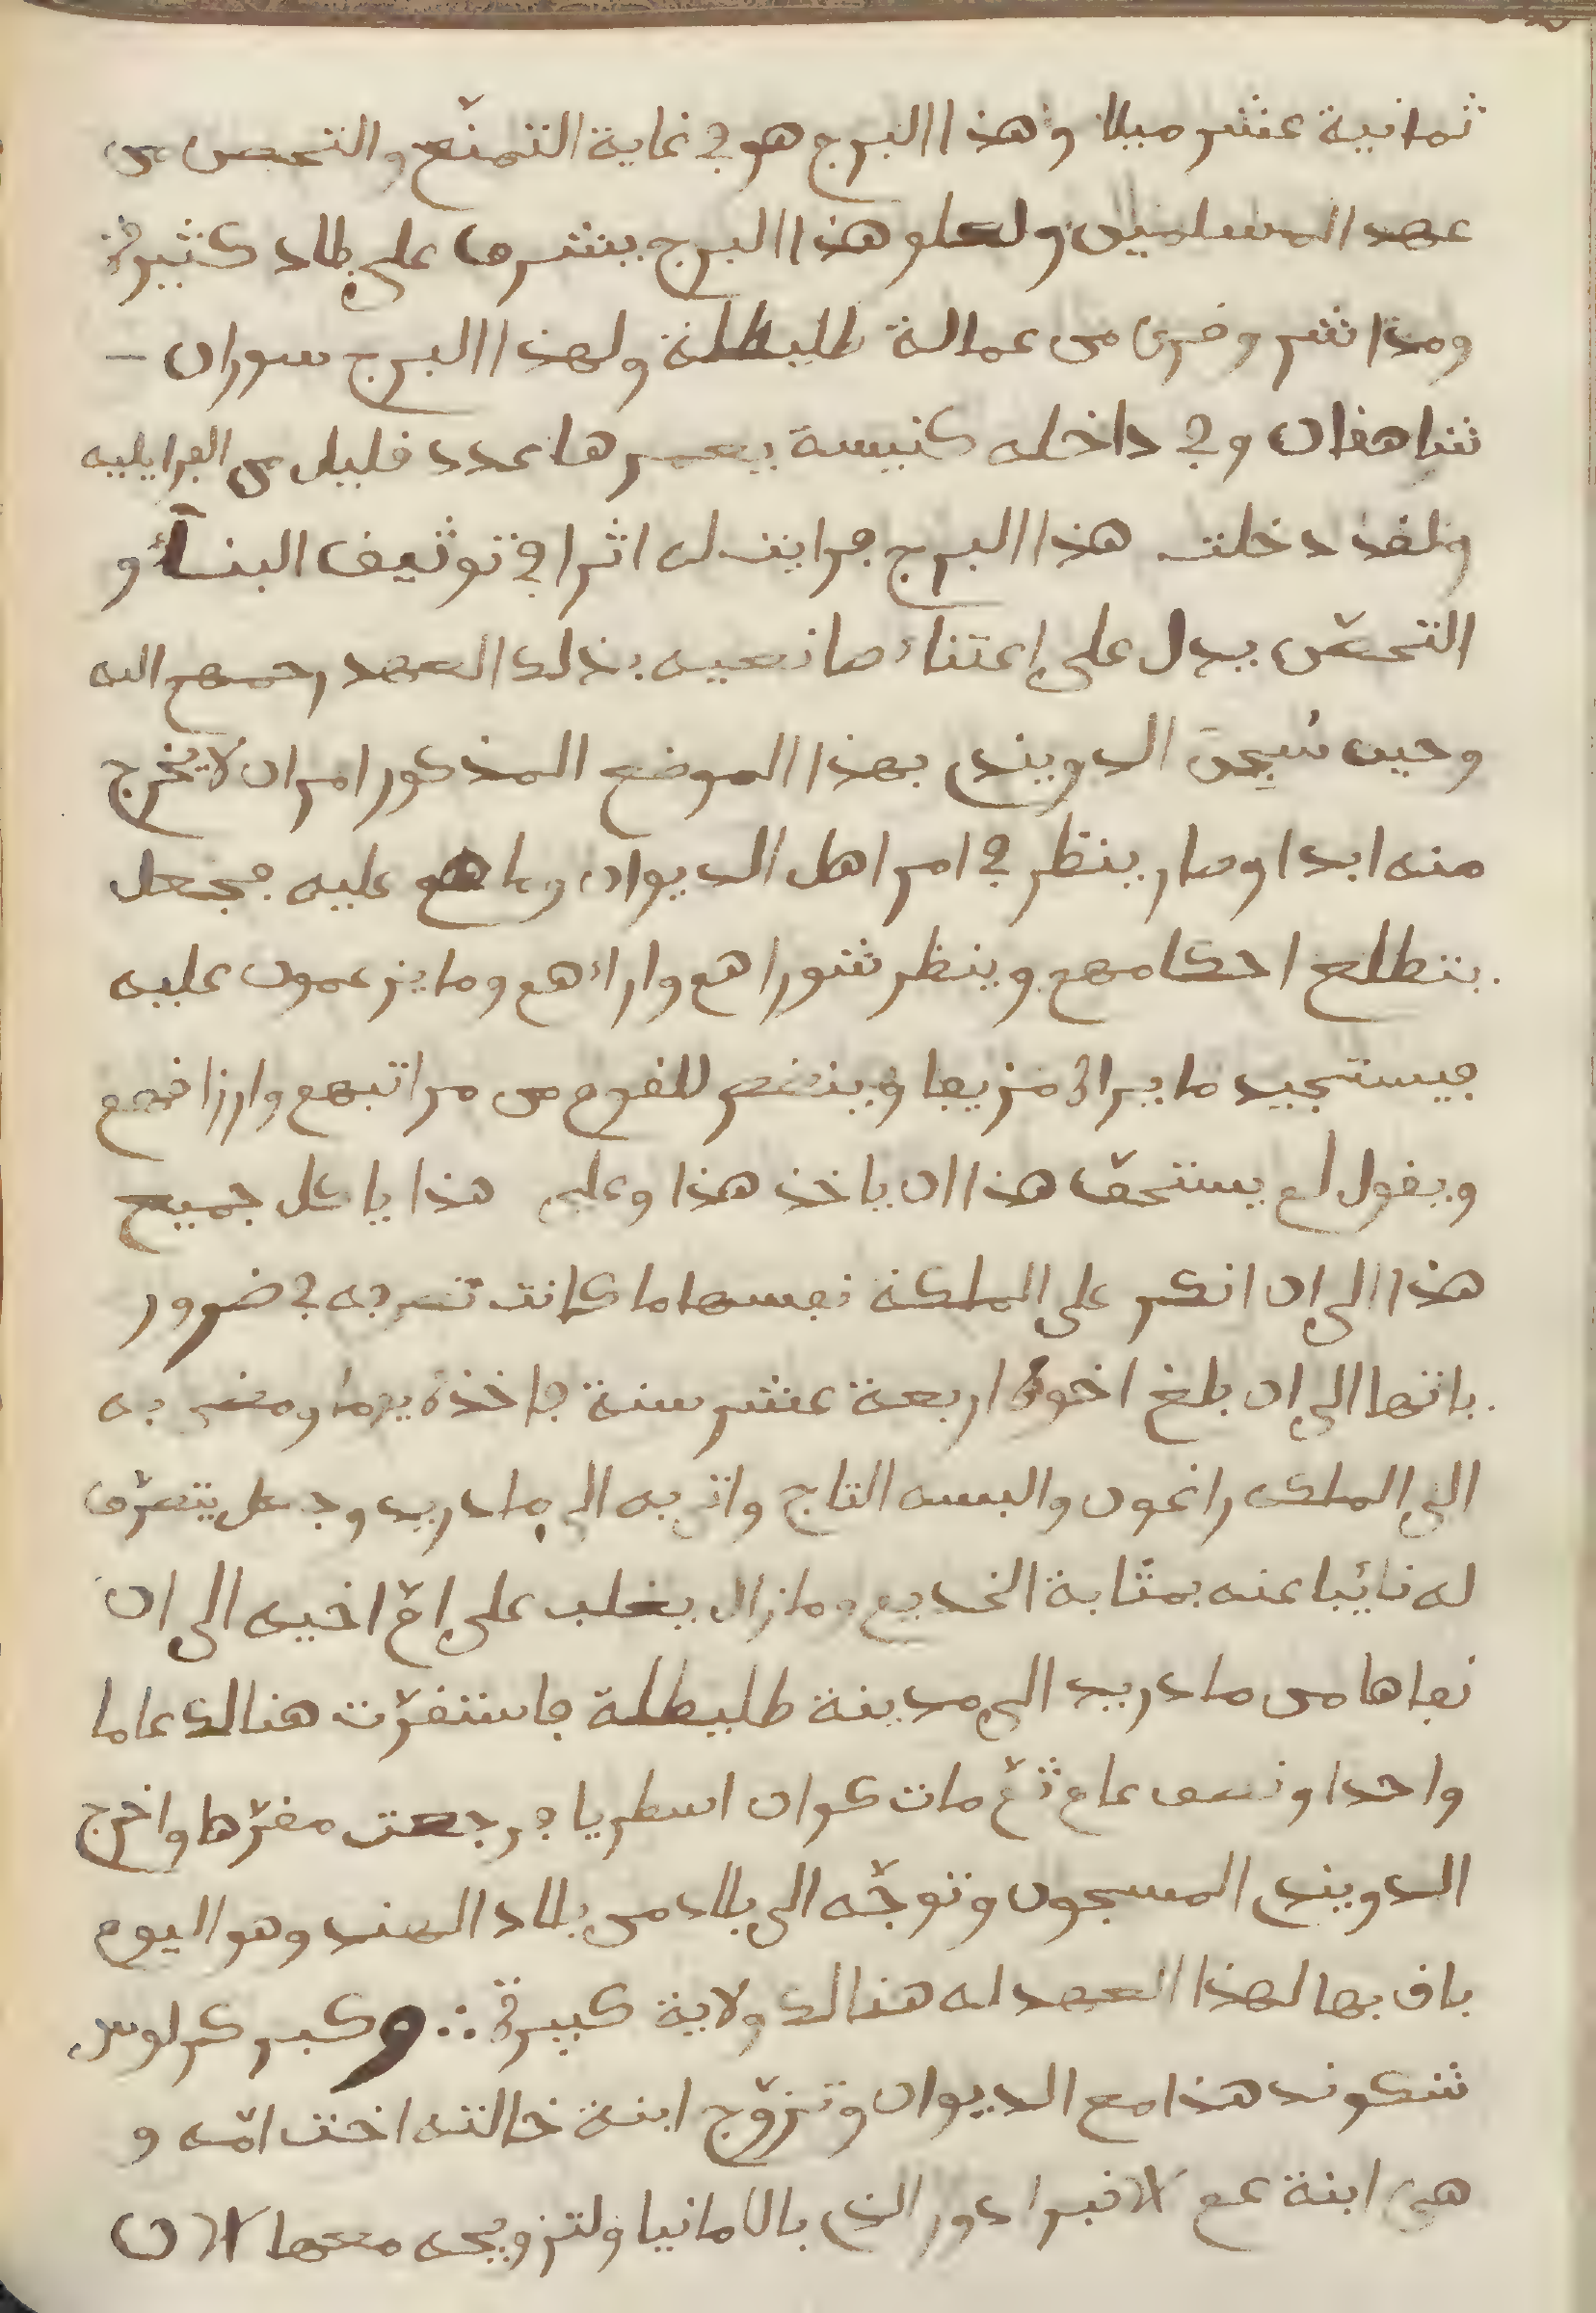 ثمانية عشر ميلا وهذا البرج هو في غاية التمنّع والتحصن من
عهد المسلمين ولعلو هذا البرج يشرف على بلاد كثيرة
ومداشر وقرى من عمالة طليطلة ولهذا البرج سوران
شاهقان وفي داخله كنيسة يعمرها عدد قليل من الفرايليه
ولقد دخلت هذا البرج فرايت له اثرا في توثيق البنآء و
التحصّن يدل على إعتناء صانعيه بذلك العهد رحمهم الله
وحين سُجِنَ الدويندي بهذا الموضع المذكور امر ان لا يخرج
منه ابدا وصار ينظر في امر اهل الديوان وما هم عليه فجعل
يتطلع احكامهم وينظر شوراهم واراءهم وما يزعمون عليه
فيستجيد ما يراه مزيفا وينقص للقوم من مراتبهم وارزاقهم
ويقول لم يستحقّ هذا ان ياخذ هذا وعلى هذا ياكل جميع
هذا الى ان انكر على الملكة نفسها ما كانت تصرفه في ضرور
ياتها الى ان بلغ اخوه اربعة عشر سنة فاخذه يوما ومضى به
الى الملك راغون والبسه التاج واتى به الى مادريد وجعل يتصرّف
له نائبا عنه بمثابة الخديم وما زال يغلب على امّ اخيه الى ان
نفاها من مادريد الى مدينة طليطلة فاستقرّت هنالك عاما
واحدا ونصف عام ثمّ مات كوان اسطريا فرجعت مقرّها واخرج
الدويندي المسجون وتوجّه الى بلاد من بلاد الهند وهو اليوم
باق بها لهذا العهد له هنالك ولاية كبيرة ∴ وكبر كرلوس
شكوند هذا مع الديوان وتزوّج ابنة خالته اخت امّه و
هي ابنة عم الانبرادور الذي بالامانيا ولتزويجه معها الان